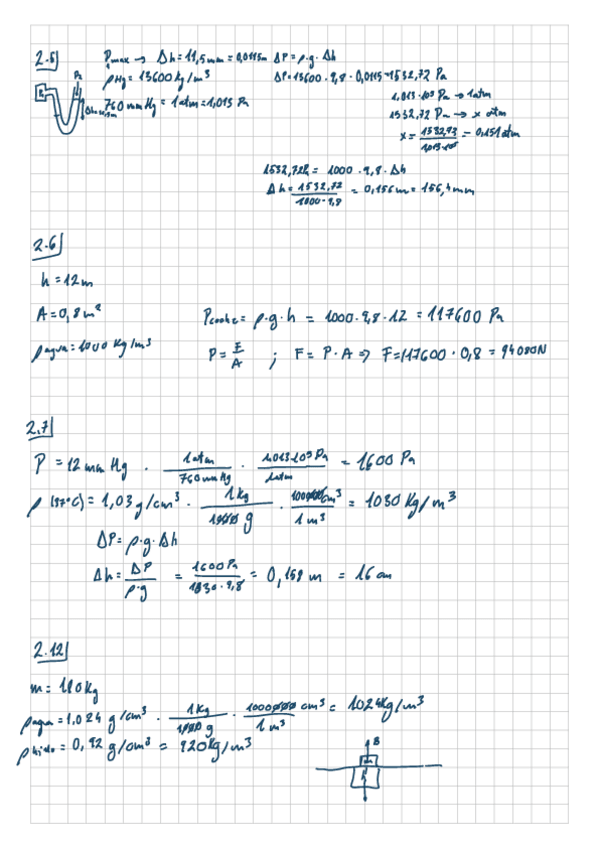 2.5|
Pmax → Δh = 11,5mm = 0,0115m ΔP = ρ·g·Δh
ρHg = 13600 kg/m³ ΔP = 13600 · 9,8 · 0,0115 = 1532,72 Pa
760 mm Hg = 1 atm = 1,013 Pa
1,013·10⁵ Pa → 1 atm
1532,72 Pa → x atm
x = 1532,73 / 1013·10⁵ = 0,151 atm
1532,72 = 1000 · 9,8 · Δh
Δh = 1532,72 / 1000 · 9,8 = 0,156 m = 156,4 mm
2.6|
h = 12 m
A = 0,8 m²
Pcoche = ρ·g·h = 1000 · 9,8 · 12 = 117600 Pa
ρagua = 1000 Kg/m³
P = F/A ; F = P·A ⇒ F = 117600 · 0,8 = 94080N
2.7|
P = 12 mm Hg · 1 atm / 760 mm Hg · 1,013·10⁵ Pa / 1 atm = 1600 Pa
ρ (37°C) = 1,03 g/cm³ · 1 kg / 1000 g · 1000000 cm³ / 1 m³ = 1030 Kg/m³
ΔP = ρ·g·Δh
Δh = ΔP / ρ·g = 1600 Pa / 1030 · 9,8 = 0,158 m = 16 cm
2.12|
m = 110 Kg
ρagua = 1,024 g/cm³ · 1 Kg / 1000 g · 1000000 cm³ / 1 m³ = 1024 Kg/m³
ρhielo = 0,92 g/cm³ = 920 Kg/m³
B